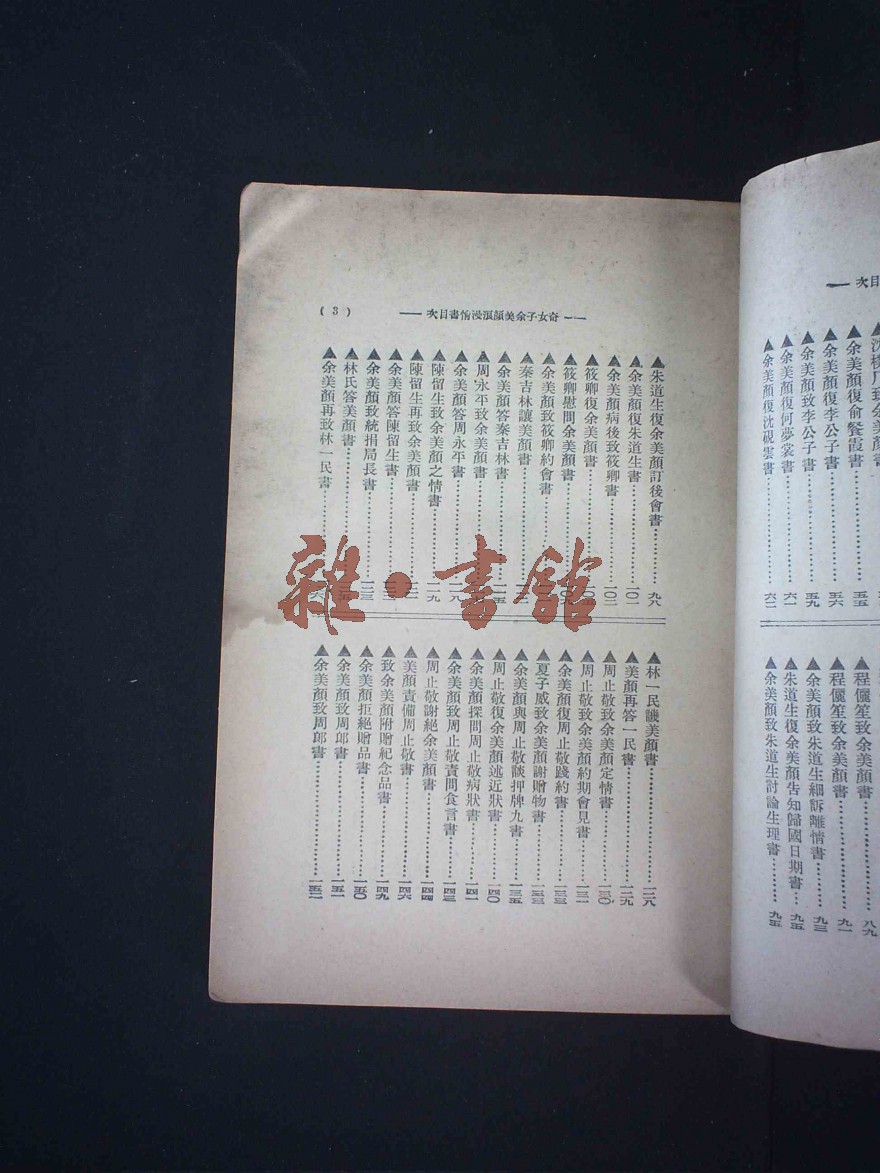 次目
沈
余美顏復俞餐霞書
五五
余美顏復李公子書
五六
余美顏致李公子書
五九
余美顏復何夢裳書
六一
余美顏復沈硯雲書
六二
八九
程儷笙致余美顏書
九一
余美顏致朱道生細訴離情書
九三
朱道生復余美顏告知歸國日期書
九五
余美顏致朱道生討論生理書
九五
奇女子余美顏浪漫情書目次
(3)
▲朱道生復余美顏訂後會書 九八
▲余美顏復朱道生書 一〇一
▲余美顏病後致筱卿書 一〇二
▲筱卿復余美顏書
▲筱卿慰問余美顏書
▲余美顏致筱卿約會書
▲秦吉林讓美顏書
▲余美顏答秦吉林書
▲周永平致余美顏書
▲余美顏答周永平書 一一八
▲陳留生致余美顏之情書 一一九
▲陳留生再致余美顏書
▲余美顏答陳留生書
▲余美顏致統捐局長書
▲林氏答美顏書
▲余美顏再致林一民書
▲林一民譏美顏書 一二八
▲美顏再答一民書 一二九
▲周止敬致余美顏定情書 一三〇
▲周止敬致余美顏約期會見書 一三一
▲余美顏復周止敬踐約書 一三三
▲夏子威致余美顏謝贈物書 一三三
▲余美顏與周止敬談押牌九書 一三五
▲周止敬復余美顏述近狀書 一四〇
▲余美顏探問周止敬病狀書 一四一
▲余美顏致周止敬責問食言書 一四三
▲周止敬謝絕余美顏書 一四四
▲美顏責備周止敬書 一四六
▲致余美顏附贈紀念品書 一四九
▲余美顏拒絕贈品書 一五〇
▲余美顏致周郎書 一五一
▲余美顏致周郎書 一五二
雜·書館